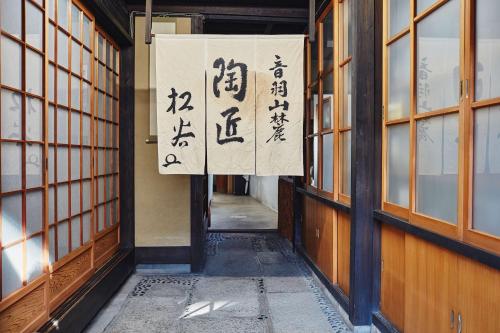 音羽山麓
陶匠
松谷